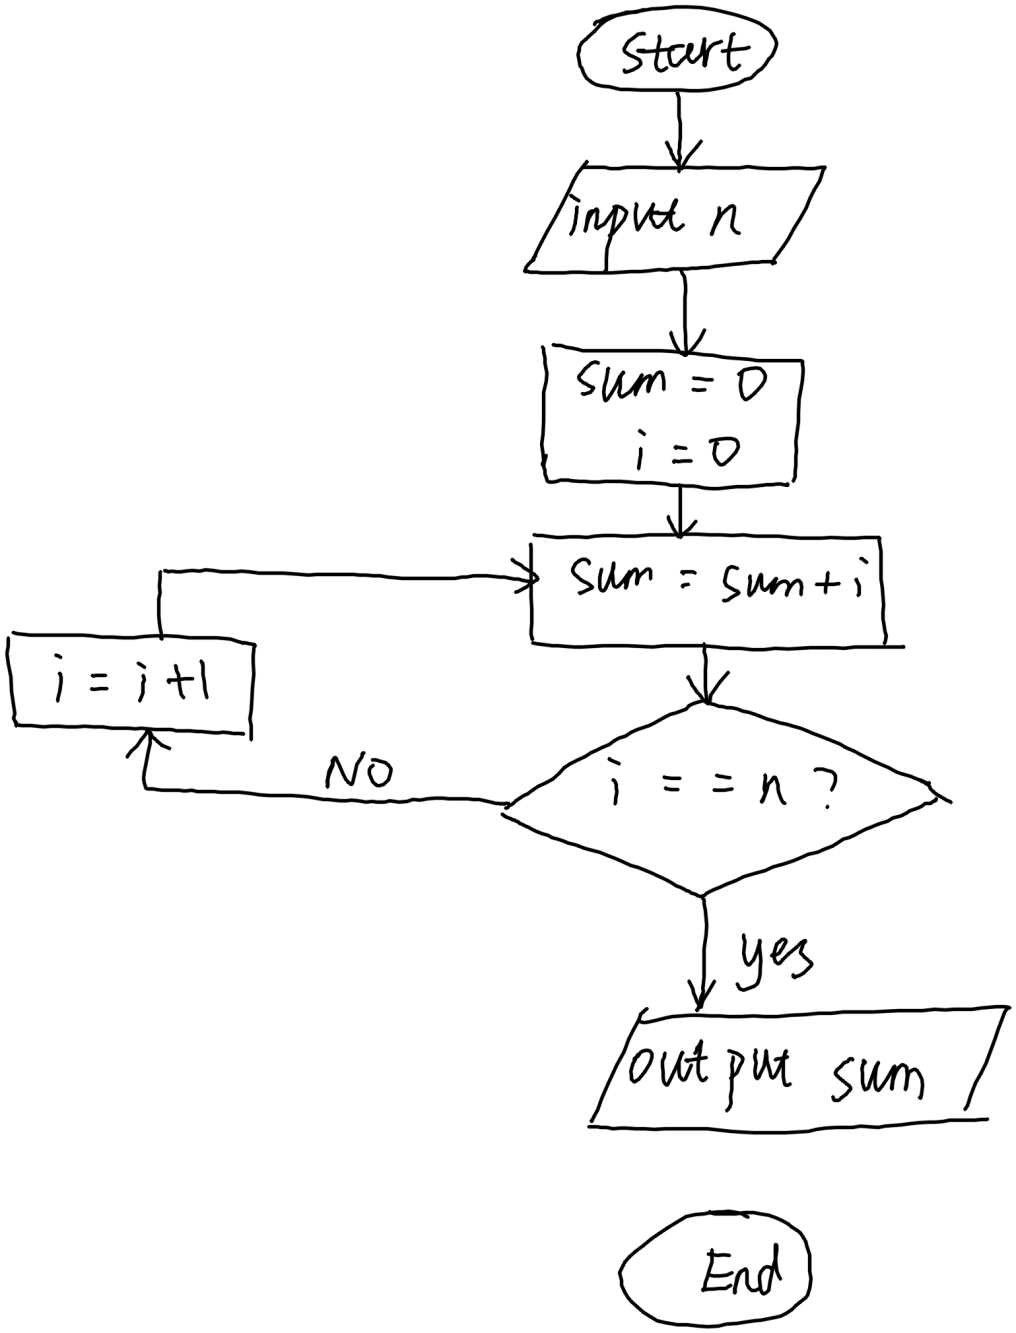 start
input n
sum = 0
i = 0
sum = sum + i
i = i + 1
i = = n ?
NO
yes
output sum
End